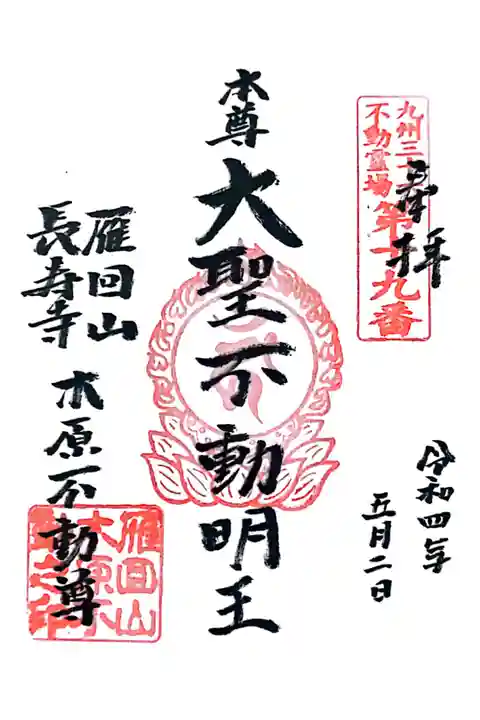 奉拝
九州三十六
不動霊場第十九番
令和四年
五月二日
本尊 大聖不動明王
雁回山
長寿寺 木原不動尊
雁回山